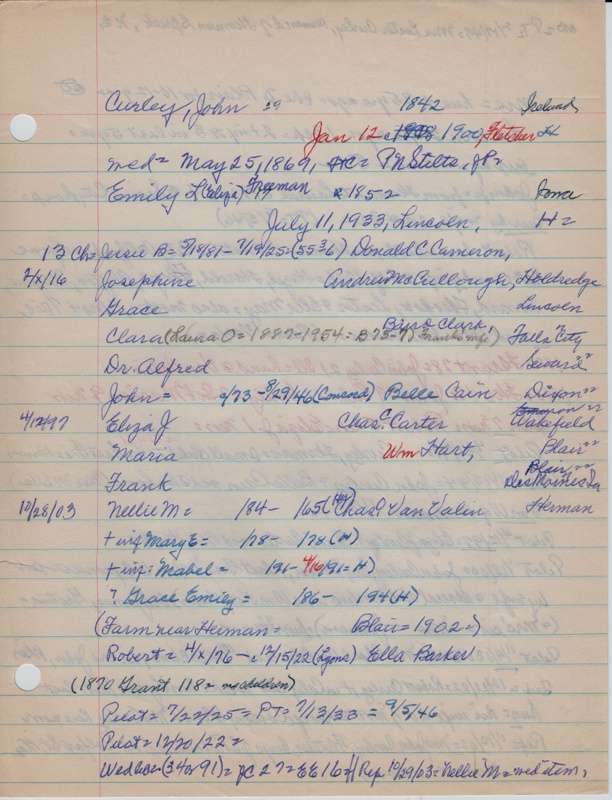 Curley, John 39 1842 Ireland
Jan 12 1900, Fletcher
med= May 25, 1869, PN Stilts, JP=
Emily L (Eliza) Freeman 1852 Iowa
July 11, 1933, Lincoln, H=
13 Ch= Jessie B= 5/18/81- 7/19/25= (5536) Donald C Cameron,
2/x/16 Josephine Andrew McCullough, Holdredge
Grace Lincoln
Clara (Laura O= 1887-1954= B73-7) Frank's wife) Baird Clark, Falls City
Dr. Alfred Seward "
John= 9/73 - 8/29/46 (Concord) Belle Cain Dixon "
4/12/97 Eliza J Chas C. Carter Wakefield
Maria Wm Hart, Blair "
Frank Blair " Des Moines Ia
10/28/03 Nellie M= /84- /65 (H) Chas. Van Valin Herman
+ inf Mary E= /78- /78 (H)
+ inf: Mabel= /91- 4/16/91= H)
? Grace Emily= /86- /94 (H)
(Farm near Herman= Blair= 1902=)
Robert= 4/x/76 - c 12/15/22 (Lyons) Ella Barker
(1870 Grant 118= no children)
Pilot= 7/22/25= PT= 7/13/33 = 9/5/46
Pilot= 12/20/22=
Wed lic= (34 or 91)= JC 27= EE 16= // Rep 10/29/03= Nellie M= wed item,